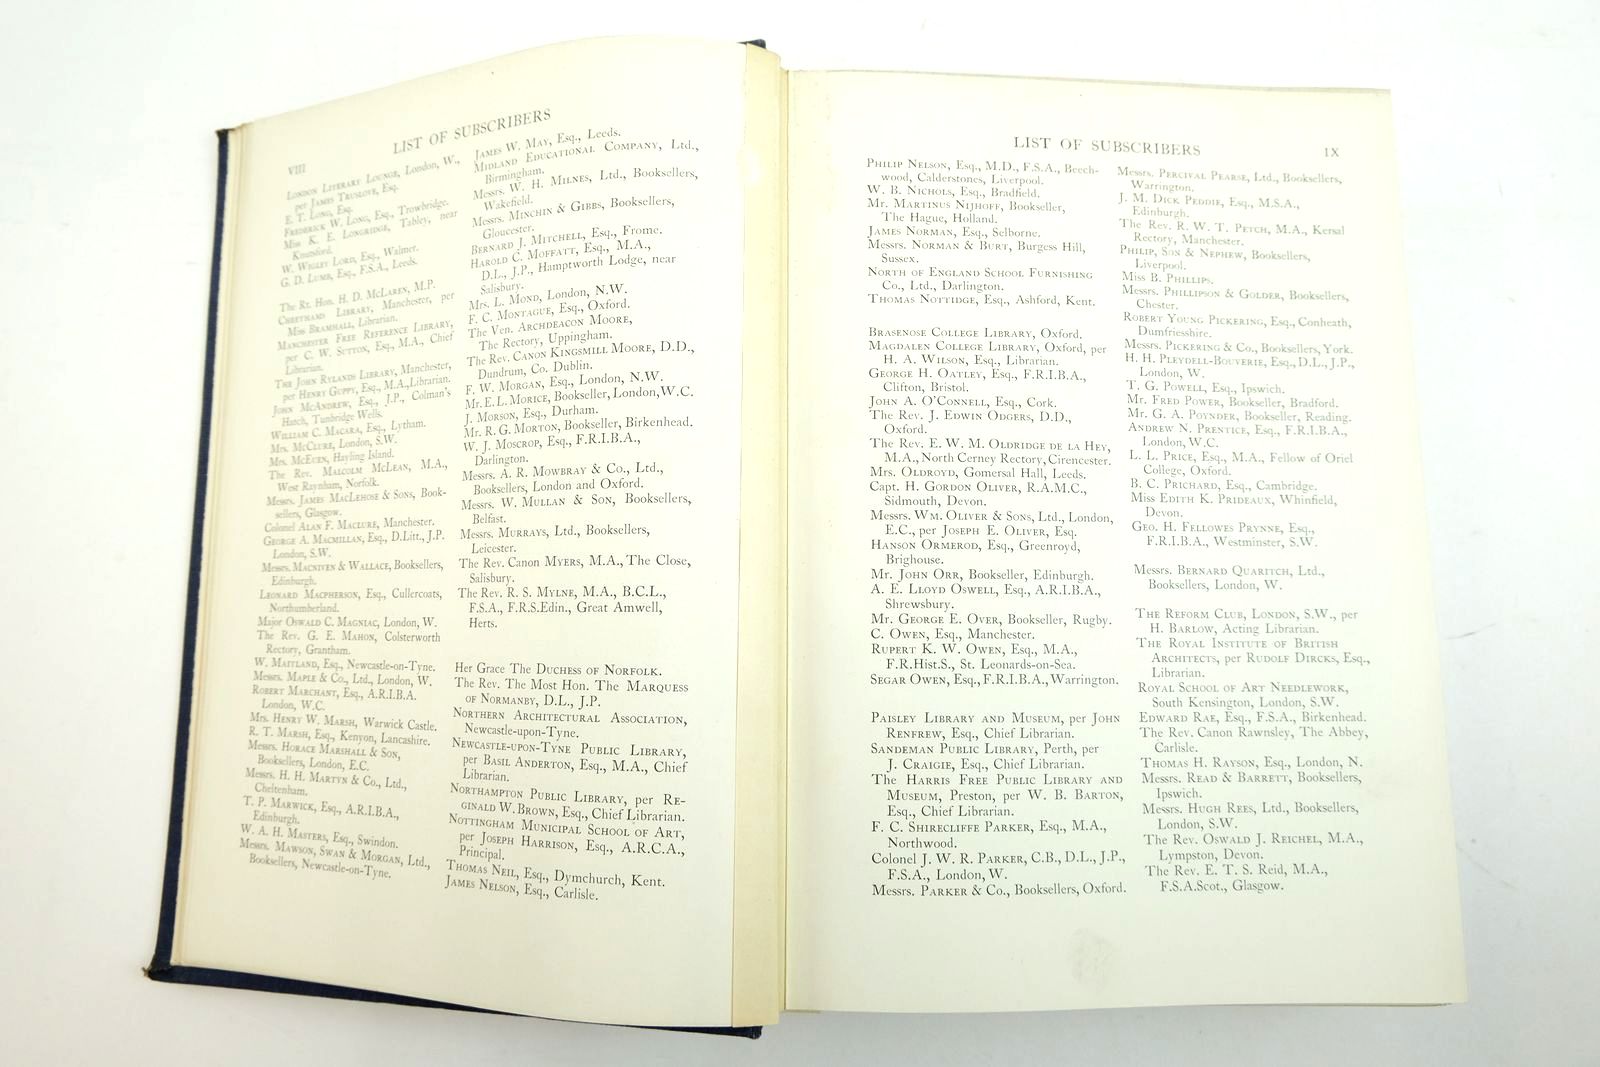 VIII
LIST OF SUBSCRIBERS
London Literary Lounge, London, W.,
per James Truslove, Esq.
E. T. Long, Esq.
Frederick W. Long, Esq., Trowbridge.
Miss K. E. Longridge, Tabley, near
Knutsford.
W. Wigley Lord, Esq., Walmer.
G. D. Lumb, Esq., F.S.A., Leeds.
The Rt. Hon. H. D. McLaren, M.P.
Cheethams Library, Manchester, per
Miss Bramhall, Librarian.
Manchester Free Reference Library,
per C. W. Sutton, Esq., M.A., Chief
Librarian.
The John Rylands Library, Manchester,
per Henry Guppy, Esq., M.A., Librarian.
John McAndrew, Esq., J.P., Colman's
Hatch, Tunbridge Wells.
William C. Macara, Esq., Lytham.
Mrs. McClure, London, S.W.
Mrs. McEuen, Hayling Island.
The Rev. Malcolm McLean, M.A.,
West Raynham, Norfolk.
Messrs. James MacLehose & Sons, Book-
sellers, Glasgow.
Colonel Alan F. Maclure, Manchester.
George A. Macmillan, Esq., D.Litt., J.P.
London, S.W.
Messrs. Macniven & Wallace, Booksellers,
Edinburgh.
Leonard Macpherson, Esq., Cullercoats,
Northumberland.
Major Oswald C. Magniac, London, W.
The Rev. G. E. Mahon, Colsterworth
Rectory, Grantham.
W. Maitland, Esq., Newcastle-on-Tyne.
Messrs. Maple & Co., Ltd., London, W.
Robert Marchant, Esq., A.R.I.B.A.
London, W.C.
Mrs. Henry W. Marsh, Warwick Castle.
R. T. Marsh, Esq., Kenyon, Lancashire.
Messrs. Horace Marshall & Son,
Booksellers, London, E.C.
Messrs. H. H. Martyn & Co., Ltd.,
Cheltenham.
T. P. Marwick, Esq., A.R.I.B.A.,
Edinburgh.
W. A. H. Masters, Esq., Swindon.
Messrs. Mawson, Swan & Morgan, Ltd.,
Booksellers, Newcastle-on-Tyne.
James W. May, Esq., Leeds.
Midland Educational Company, Ltd.,
Birmingham.
Messrs. W. H. Milnes, Ltd., Booksellers,
Wakefield.
Messrs. Minchin & Gibbs, Booksellers,
Gloucester.
Bernard J. Mitchell, Esq., Frome.
Harold C. Moffatt, Esq., M.A.,
D.L., J.P., Hamptworth Lodge, near
Salisbury.
Mrs. L. Mond, London, N.W.
F. C. Montague, Esq., Oxford.
The Ven. Archdeacon Moore,
The Rectory, Uppingham.
The Rev. Canon Kingsmill Moore, D.D.,
Dundrum, Co. Dublin.
F. W. Morgan, Esq., London, N.W.
Mr. E. L. Morice, Bookseller, London, W.C.
J. Morson, Esq., Durham.
Mr. R. G. Morton, Bookseller, Birkenhead.
W. J. Moscrop, Esq., F.R.I.B.A.,
Darlington.
Messrs. A. R. Mowbray & Co., Ltd.,
Booksellers, London and Oxford.
Messrs. W. Mullan & Son, Booksellers,
Belfast.
Messrs. Murrays, Ltd., Booksellers,
Leicester.
The Rev. Canon Myers, M.A., The Close,
Salisbury.
The Rev. R. S. Mylne, M.A., B.C.L.,
F.S.A., F.R.S.Edin., Great Amwell,
Herts.
Her Grace The Duchess of Norfolk.
The Rev. The Most Hon. The Marquess
of Normanby, D.L., J.P.
Northern Architectural Association,
Newcastle-upon-Tyne.
Newcastle-upon-Tyne Public Library,
per Basil Anderton, Esq., M.A., Chief
Librarian.
Northampton Public Library, per Re-
ginald W. Brown, Esq., Chief Librarian.
Nottingham Municipal School of Art,
per Joseph Harrison, Esq., A.R.C.A.,
Principal.
Thomas Neil, Esq., Dymchurch, Kent.
James Nelson, Esq., Carlisle.
LIST OF SUBSCRIBERS
IX
Philip Nelson, Esq., M.D., F.S.A., Beech-
wood, Calderstones, Liverpool.
W. B. Nichols, Esq., Bradfield.
Mr. Martinus Nijhoff, Bookseller,
The Hague, Holland.
James Norman, Esq., Selborne.
Messrs. Norman & Burt, Burgess Hill,
Sussex.
North of England School Furnishing
Co., Ltd., Darlington.
Thomas Nottidge, Esq., Ashford, Kent.
Brasenose College Library, Oxford.
Magdalen College Library, Oxford, per
H. A. Wilson, Esq., Librarian.
George H. Oatley, Esq., F.R.I.B.A.,
Clifton, Bristol.
John A. O'Connell, Esq., Cork.
The Rev. J. Edwin Odgers, D.D.,
Oxford.
The Rev. E. W. M. Oldridge de la Hey,
M.A., North Cerney Rectory, Cirencester.
Mrs. Oldroyd, Gomersal Hall, Leeds.
Capt. H. Gordon Oliver, R.A.M.C.,
Sidmouth, Devon.
Messrs. Wm. Oliver & Sons, Ltd., London,
E.C., per Joseph E. Oliver, Esq.
Hanson Ormerod, Esq., Greenroyd,
Brighouse.
Mr. John Orr, Bookseller, Edinburgh.
A. E. Lloyd Oswell, Esq., A.R.I.B.A.,
Shrewsbury.
Mr. George E. Over, Bookseller, Rugby.
C. Owen, Esq., Manchester.
Rupert K. W. Owen, Esq., M.A.,
F.R.Hist.S., St. Leonards-on-Sea.
Segar Owen, Esq., F.R.I.B.A., Warrington.
Paisley Library and Museum, per John
Renfrew, Esq., Chief Librarian.
Sandeman Public Library, Perth, per
J. Craigie, Esq., Chief Librarian.
The Harris Free Public Library and
Museum, Preston, per W. B. Barton,
Esq., Chief Librarian.
F. C. Shirecliffe Parker, Esq., M.A.,
Northwood.
Colonel J. W. R. Parker, C.B., D.L., J.P.,
F.S.A., London, W.
Messrs. Parker & Co., Booksellers, Oxford.
Messrs. Percival Pearse, Ltd., Booksellers,
Warrington.
J. M. Dick Peddie, Esq., M.S.A.,
Edinburgh.
The Rev. R. W. T. Petch, M.A., Kersal
Rectory, Manchester.
Philip, Son & Nephew, Booksellers,
Liverpool.
Miss B. Phillips.
Messrs. Phillipson & Golder, Booksellers,
Chester.
Robert Young Pickering, Esq., Conheath,
Dumfriesshire.
Messrs. Pickering & Co., Booksellers, York.
H. H. Pleydell-Bouverie, Esq., D.L., J.P.,
London, W.
T. G. Powell, Esq., Ipswich.
Mr. Fred Power, Bookseller, Bradford.
Mr. G. A. Poynder, Bookseller, Reading.
Andrew N. Prentice, Esq., F.R.I.B.A.,
London, W.C.
L. L. Price, Esq., M.A., Fellow of Oriel
College, Oxford.
B. C. Prichard, Esq., Cambridge.
Miss Edith K. Prideaux, Whinfield,
Devon.
Geo. H. Fellowes Prynne, Esq.,
F.R.I.B.A., Westminster, S.W.
Messrs. Bernard Quaritch, Ltd.,
Booksellers, London, W.
The Reform Club, London, S.W., per
H. Barlow, Acting Librarian.
The Royal Institute of British
Architects, per Rudolf Dircks, Esq.,
Librarian.
Royal School of Art Needlework,
South Kensington, London, S.W.
Edward Rae, Esq., F.S.A., Birkenhead.
The Rev. Canon Rawnsley, The Abbey,
Carlisle.
Thomas H. Rayson, Esq., London, N.
Messrs. Read & Barrett, Booksellers,
Ipswich.
Messrs. Hugh Rees, Ltd., Booksellers,
London, S.W.
The Rev. Oswald J. Reichel, M.A.,
Lympston, Devon.
The Rev. E. T. S. Reid, M.A.,
F.S.A.Scot., Glasgow.